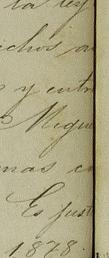 la ley
chos
y entre
Migu
mas
Es just
1878.